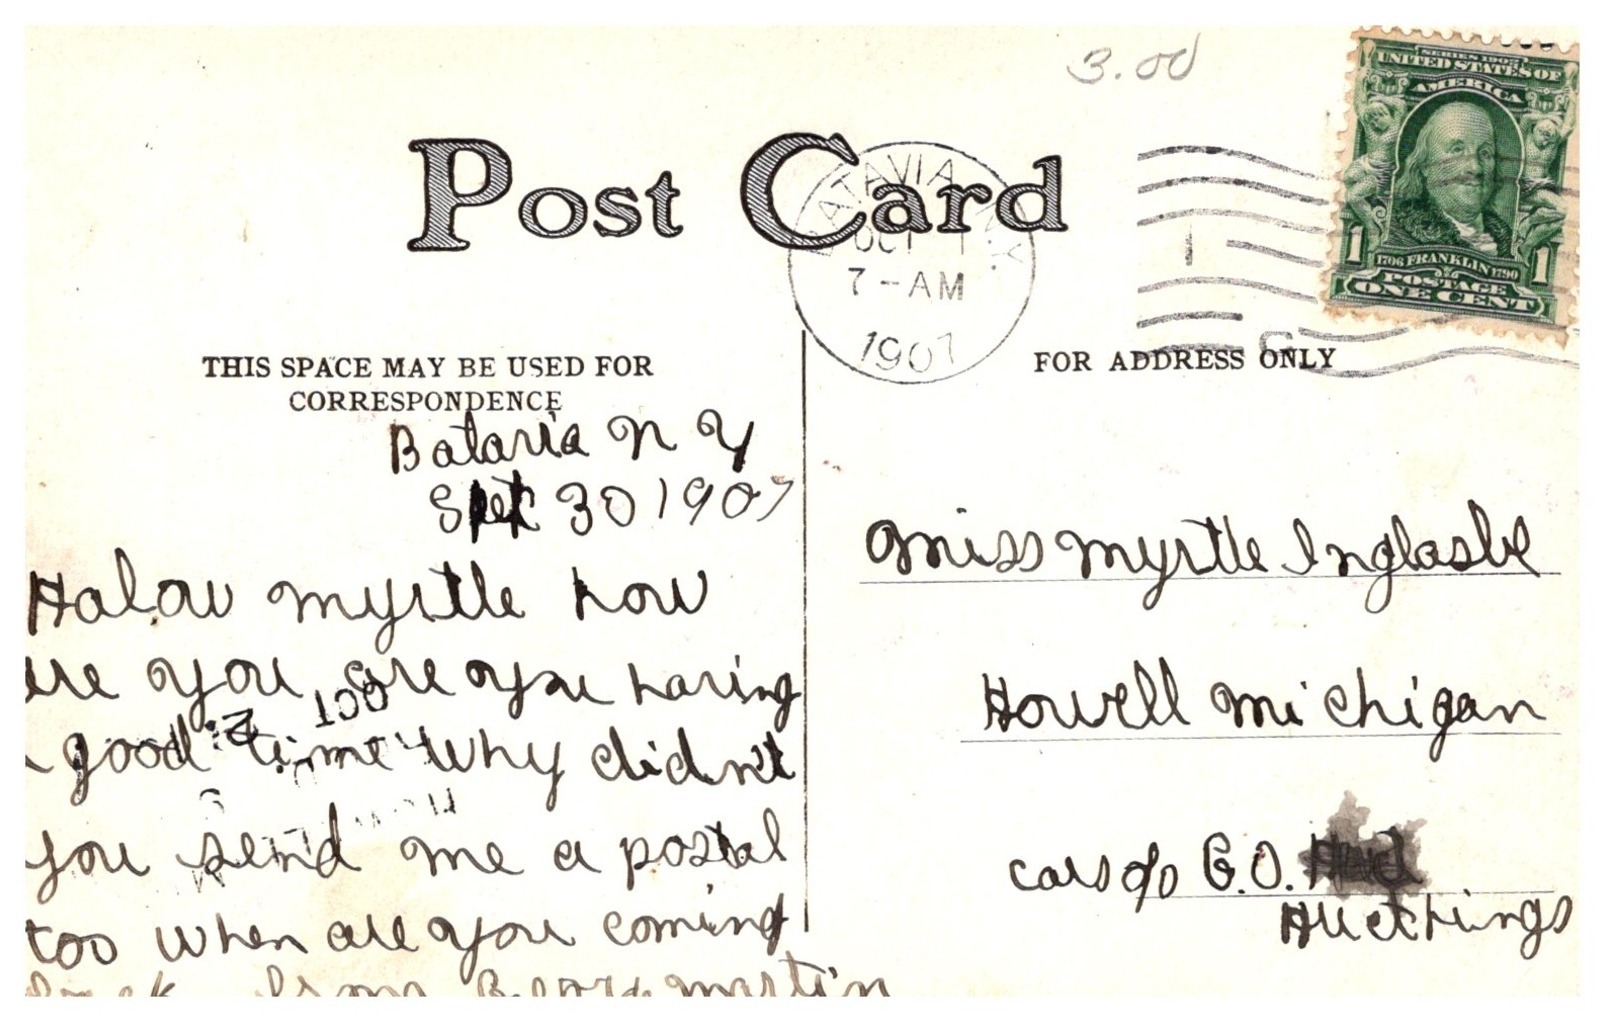 3.00
SERIES 1902
UNITED STATES OF
AMERICA
1 1706 FRANKLIN 1790 1
POSTAGE
ONE CENT
Post Card
BATAVIA N.Y.
OCT 1
7-AM
1907
THIS SPACE MAY BE USED FOR
CORRESPONDENCE
FOR ADDRESS ONLY
Batavia N Y
Sept 30 1907
Halow Myrtle how
are you are you having
a good time Why didn't
you send me a postal
too when are you coming
back from Martin
OCT 2
Miss Myrtle Inglasbe
Howell Michigan
cars c/o G.O.
Hutchings